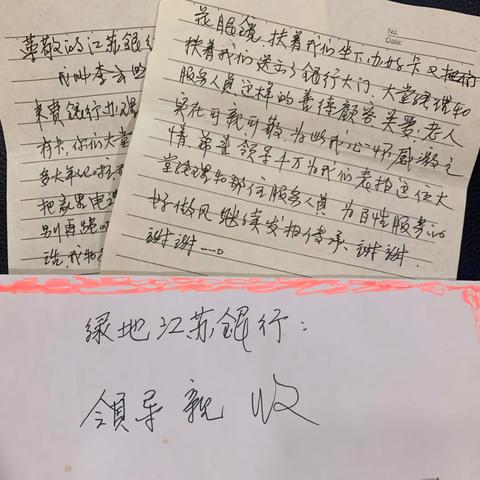 尊敬的江苏银行
我叫李云
来贵银行办理
有卡,你们大堂
多大年纪
把家里电
别再跑
No.
Date:
花服镜,扶着我们坐下办好卡又
扶着我们送出了银行大门,大堂经理和
服务人员这样的善待顾客关爱老人
实在可亲可敬,为此我心怀感激之
情,希望领导千万为我们表扬这位大
堂经理和那位服务人员,为百姓服务的
好作风继续发扬传承、谢谢.
谢谢
绿地江苏银行:
领导亲收